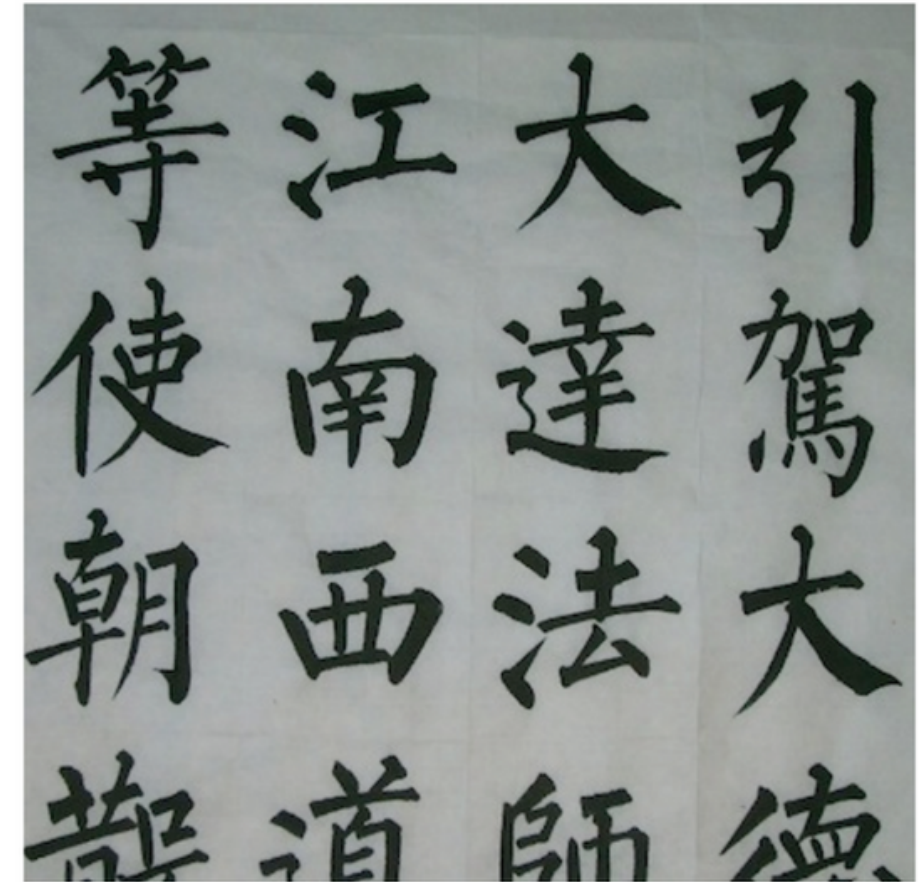 引駕大德
大達法師
江南西道
等使朝